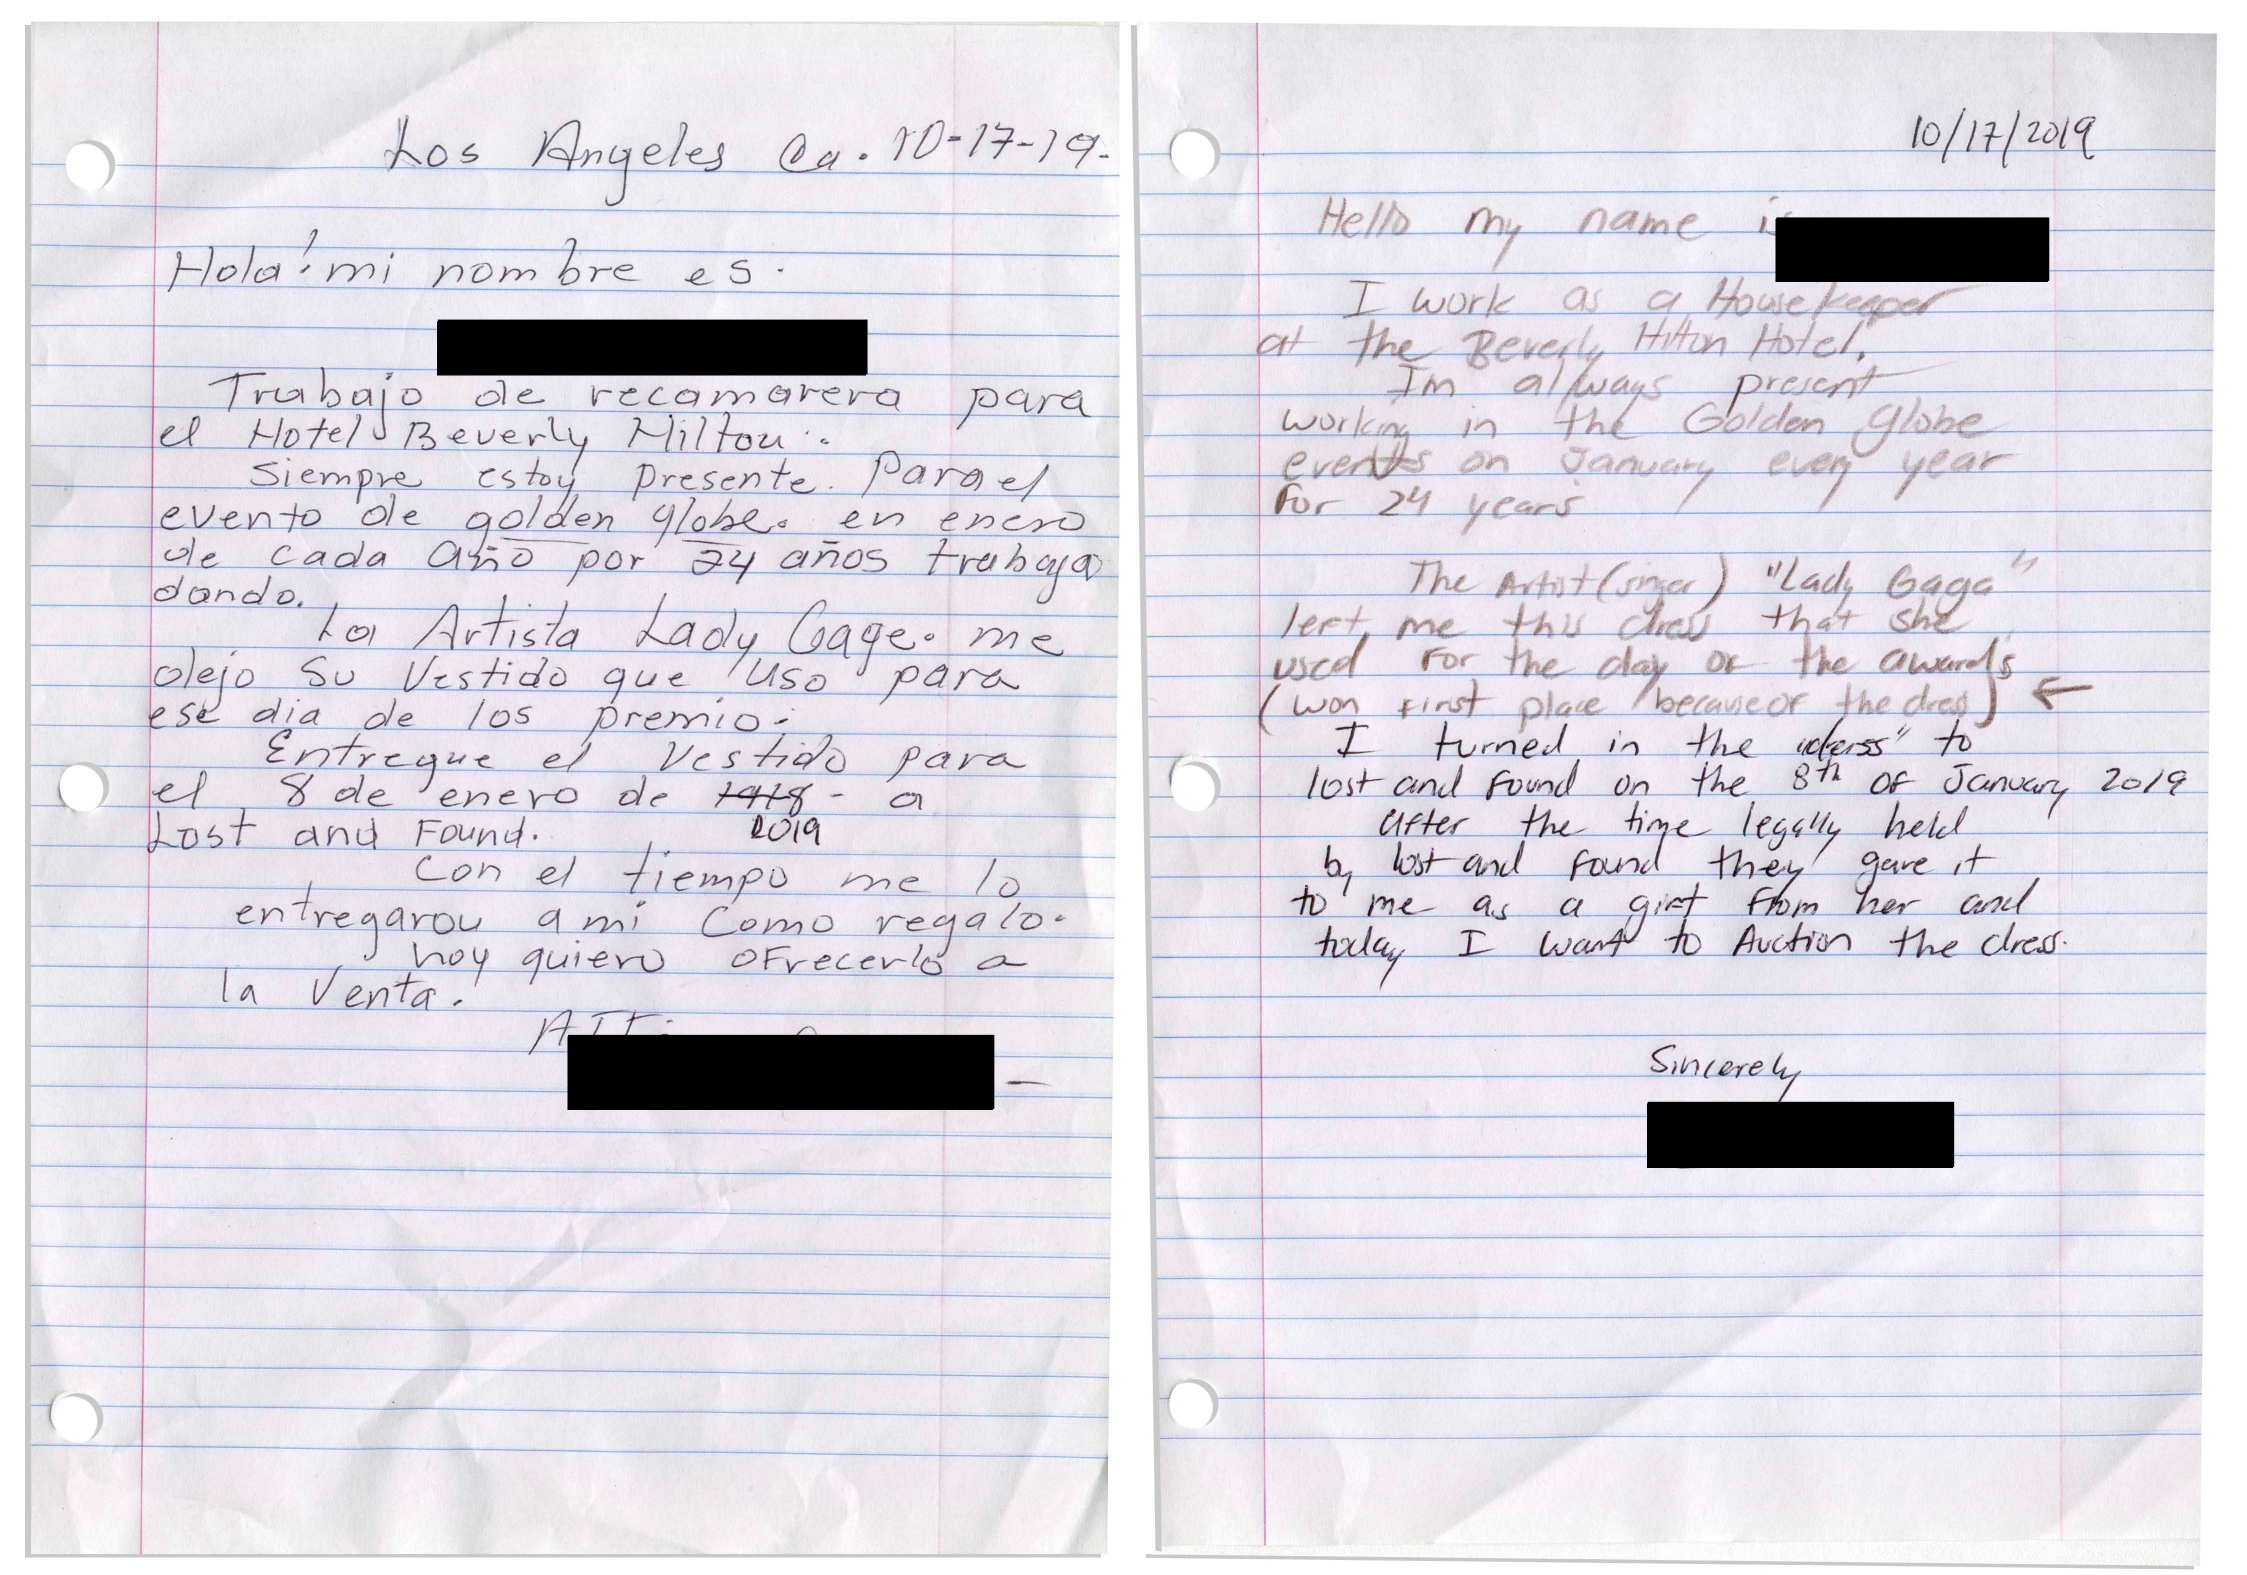 Los Angeles Ca. 10-17-19.
Hola! mi nombre es.
Trabajo de recamarera para
el Hotel Beverly Hilton.
Siempre estoy presente. Para el
evento de golden globe. en enero
de cada año por 24 años trabaja
dando.
La Artista Lady Gage. me
dejo su Vestido que uso para
ese dia de los premio.
Entregue el Vestido para
el 8 de enero de 1918 - a
Lost and Found. 2019
Con el tiempo me lo
entregarou a mi Como regalo.
hoy quiero oFrecerlo a
la Venta.

10/17/2019
Hello my name is
I work as a Housekeeper
at the Beverly Hilton Hotel.
Im always present
working in the Golden globe
events on January every year
For 24 years
The Artist (singer) "Lady Gaga"
left me this dress that she
used For the day OF the awards
(won First place because OF the dress) ←
I turned in the "derss" to
lost and Found on the 8th OF January 2019
after the time legally held
by lost and Found they gave it
to me as a giFt From her and
today I want to Auction the dress.
Sincerely